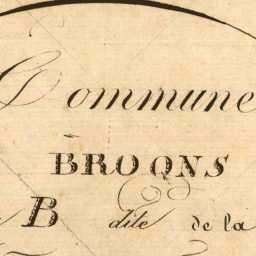 Commune
BROONS
B dite de la